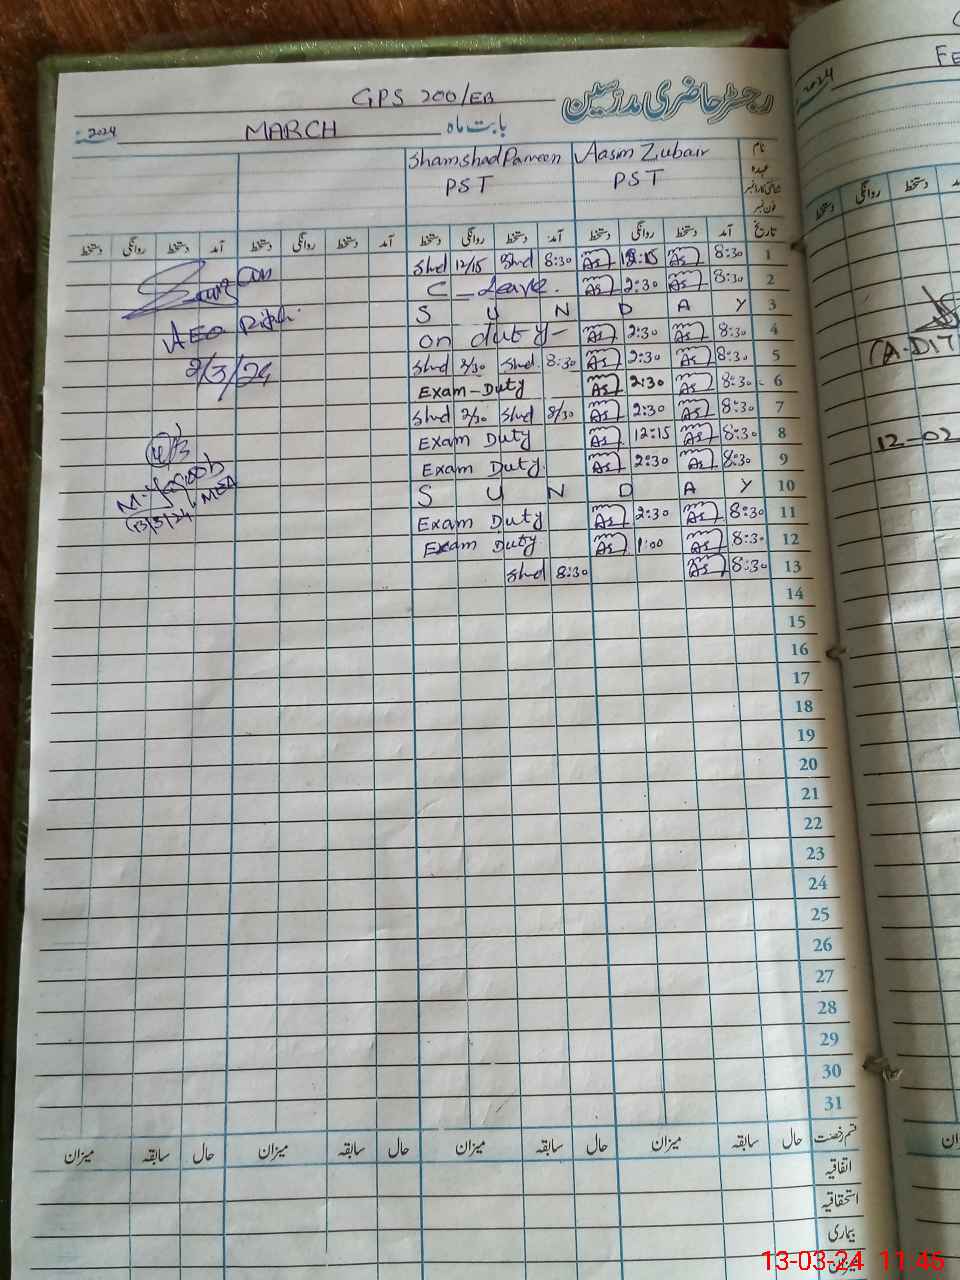 GPS 200/EB رجسٹر حاضری مدرسین
2024 MARCH بابت ماہ
Shamshad Parveen Aasim Zubair نام
PST PST عہدہ
شناختی کارڈ نمبر
فون نمبر
دستخط روانگی دستخط آمد دستخط روانگی دستخط آمد دستخط روانگی دستخط آمد دستخط روانگی دستخط آمد تاریخ
Shd 12/15 Shd 8:30 As 12:15 As 8:30 1
C - Leave. As 2:30 As 8:30 2
S U N D A Y 3
AEO
on duty - As 2:30 As 8:30 4
2/3/24 Shd 2/30 Shd 8:30 As 2:30 As 8:30 5
Exam-Duty As 2:30 As 8:30 6
Shd 2/30 Shd 8/30 As 2:30 As 8:30 7
Exam Duty As 12:15 As 8:30 8
Exam Duty. As 2:30 As 8:30 9
S U N D A Y 10
13/3/24 MEA
Exam Duty As 2:30 As 8:30 11
Exam Duty. As 1:00 As 8:30 12
Shd 8:30 As 8:30 13
14
15
16
17
18
19
20
21
22
23
24
25
26
27
28
29
30
31
میزان سابقہ حال میزان سابقہ حال میزان سابقہ حال میزان سابقہ حال قسم رخصت
اتفاقیہ
استحقاقیہ
بیماری
میزان
2024 FE
روانگی دستخط
(A-DIT
12-02
13-03-24 11:45